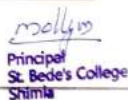 Principal
St. Bede's College
Shimla